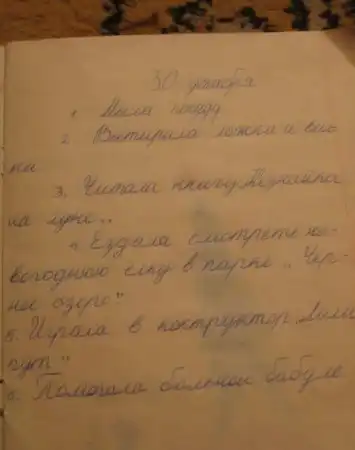 30 декабря
1. Мыла посуду
2. Вытирала ложки и вил
ки
3. Читала книгу„Незнайка
на луне"
4. Ездала смотреть но-
вогоднюю елку в парке „Чер-
ное озеро"
5. Играла в конструктор „Лили
пут"
6. Помогала больной бабуле